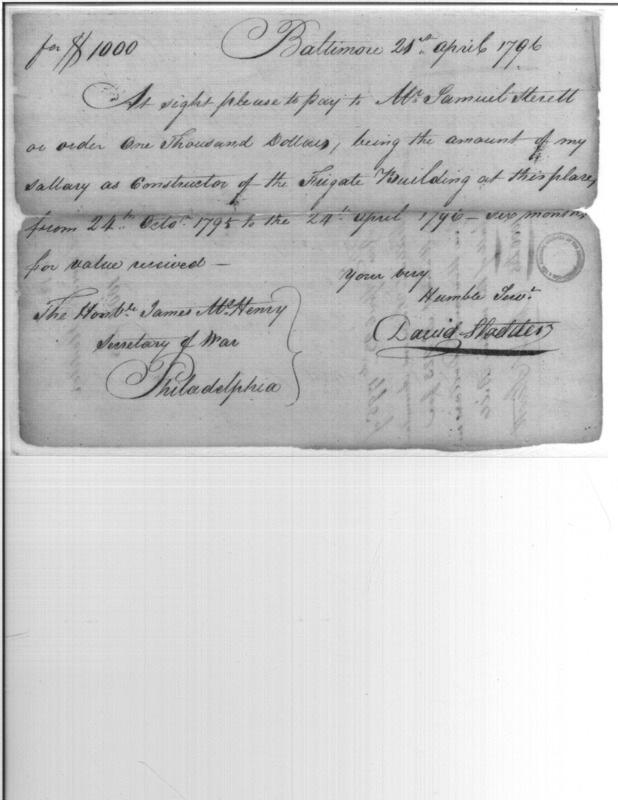 for $1000 Baltimore 21st april 1796
At sight please to pay to Mr. Samuel Sterett
or order One Thousand Dollars, being the amount of my
sallary as Constructor of the Frigate Building at this place,
from 24th Octor. 1795 to the 24th april 1796 – six months
for value received —
Your very
Humble Servt.
David Stodder
The Honble James McHenry
Secretary of War
Philadelphia